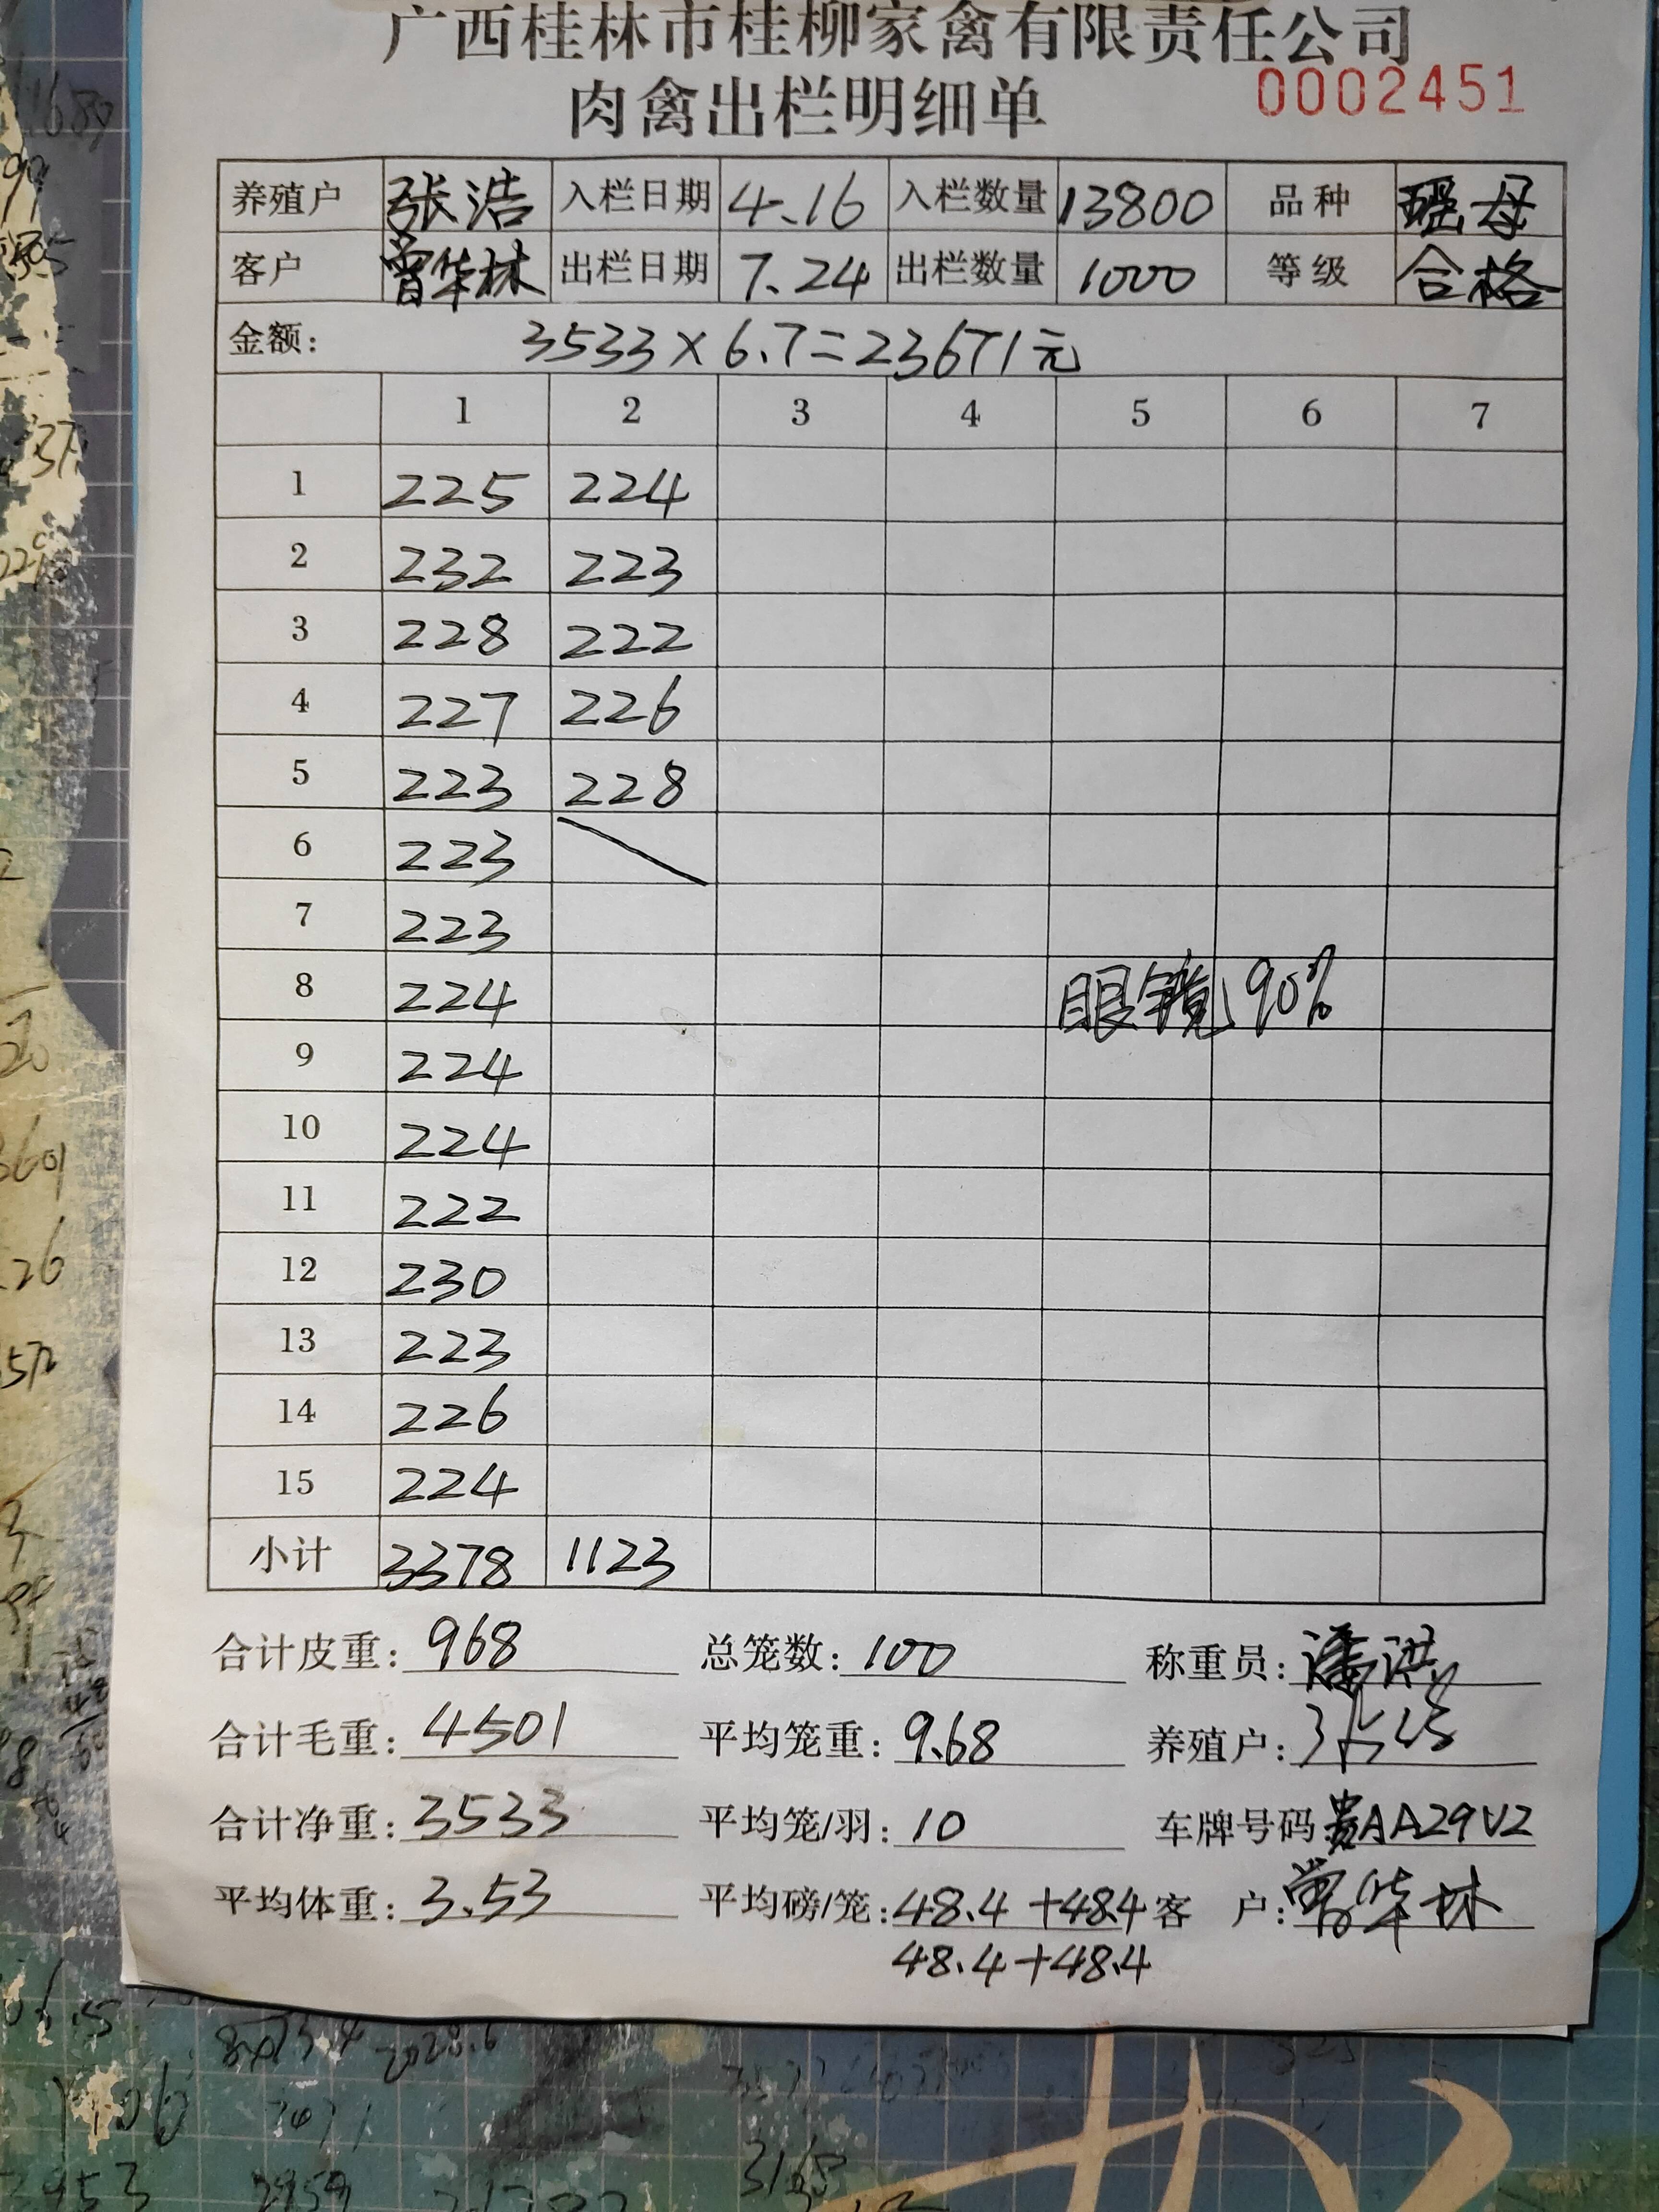 广西桂林市桂柳家禽有限责任公司
肉禽出栏明细单 0002451
养殖户 张浩 入栏日期 4.16 入栏数量 13800 品种 瑶母
客户 曾华林 出栏日期 7.24 出栏数量 1000 等级 合格
金额: 3533×6.7=23671元
1 2 3 4 5 6 7
1 225 224
2 232 223
3 228 222
4 227 226
5 223 228
6 223
7 223
8 224 眼镜90%
9 224
10 224
11 222
12 230
13 223
14 226
15 224
小计 3378 1123
合计皮重: 968 总笼数: 100 称重员: 潘洪
合计毛重: 4501 平均笼重: 9.68 养殖户: 张浩
合计净重: 3533 平均笼/羽: 10 车牌号码: 贵AA29V2
平均体重: 3.53 平均磅/笼: 48.4+48.4 客户: 曾华林
48.4+48.4